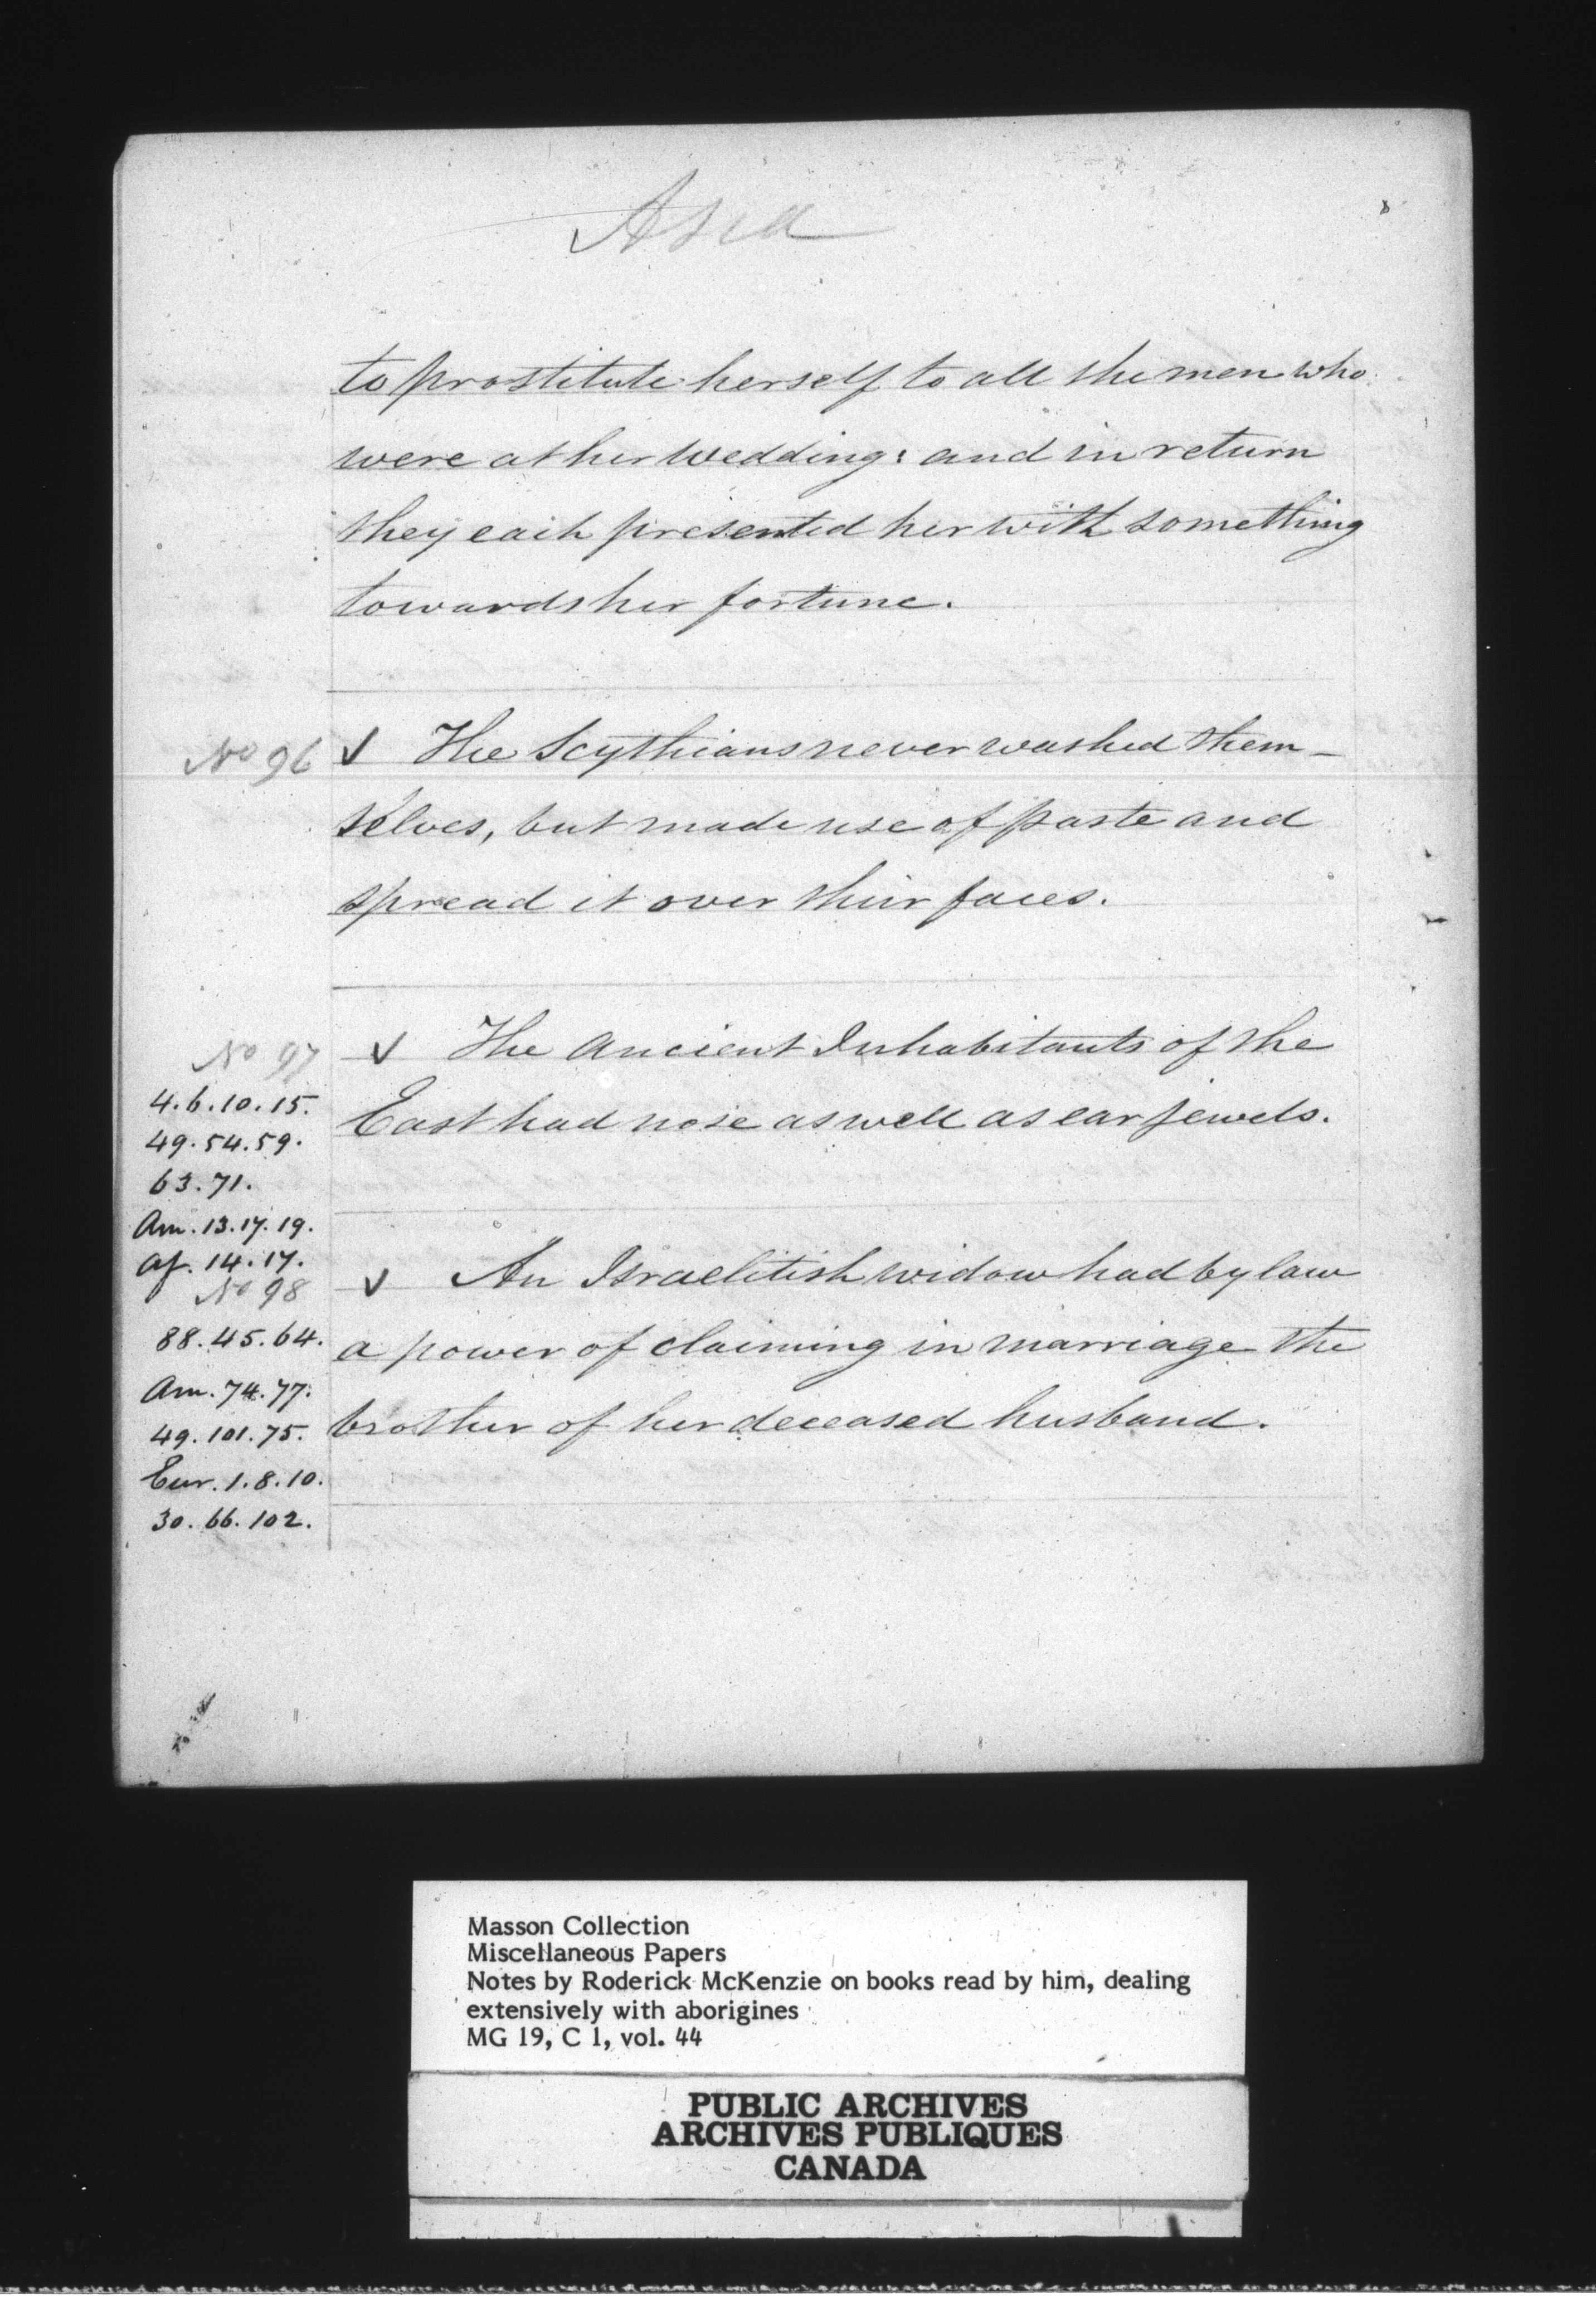 Asia
to prostitute herself to all the men who
were at her wedding: and in return
they each presented her with something
towards her fortune.
No 96 √ The Scythians never washed them-
selves, but made use of paste and
spread it over their faces.
No 97 √ The Ancient Inhabitants of the
4.6.10.15.
East had nose as well as ear jewels.
49.54.59.
63.71.
Am. 13.17.19.
Af. 14.17.
No 98 √ An Israelitish widow had by law
88.45.64.
a power of claiming in marriage the
Am. 74.77.
brother of her deceased husband.
49.101.75.
Eur. 1.8.10.
30.66.102.
Masson Collection
Miscellaneous Papers
Notes by Roderick McKenzie on books read by him, dealing
extensively with aborigines
MG 19, C 1, vol. 44
PUBLIC ARCHIVES
ARCHIVES PUBLIQUES
CANADA